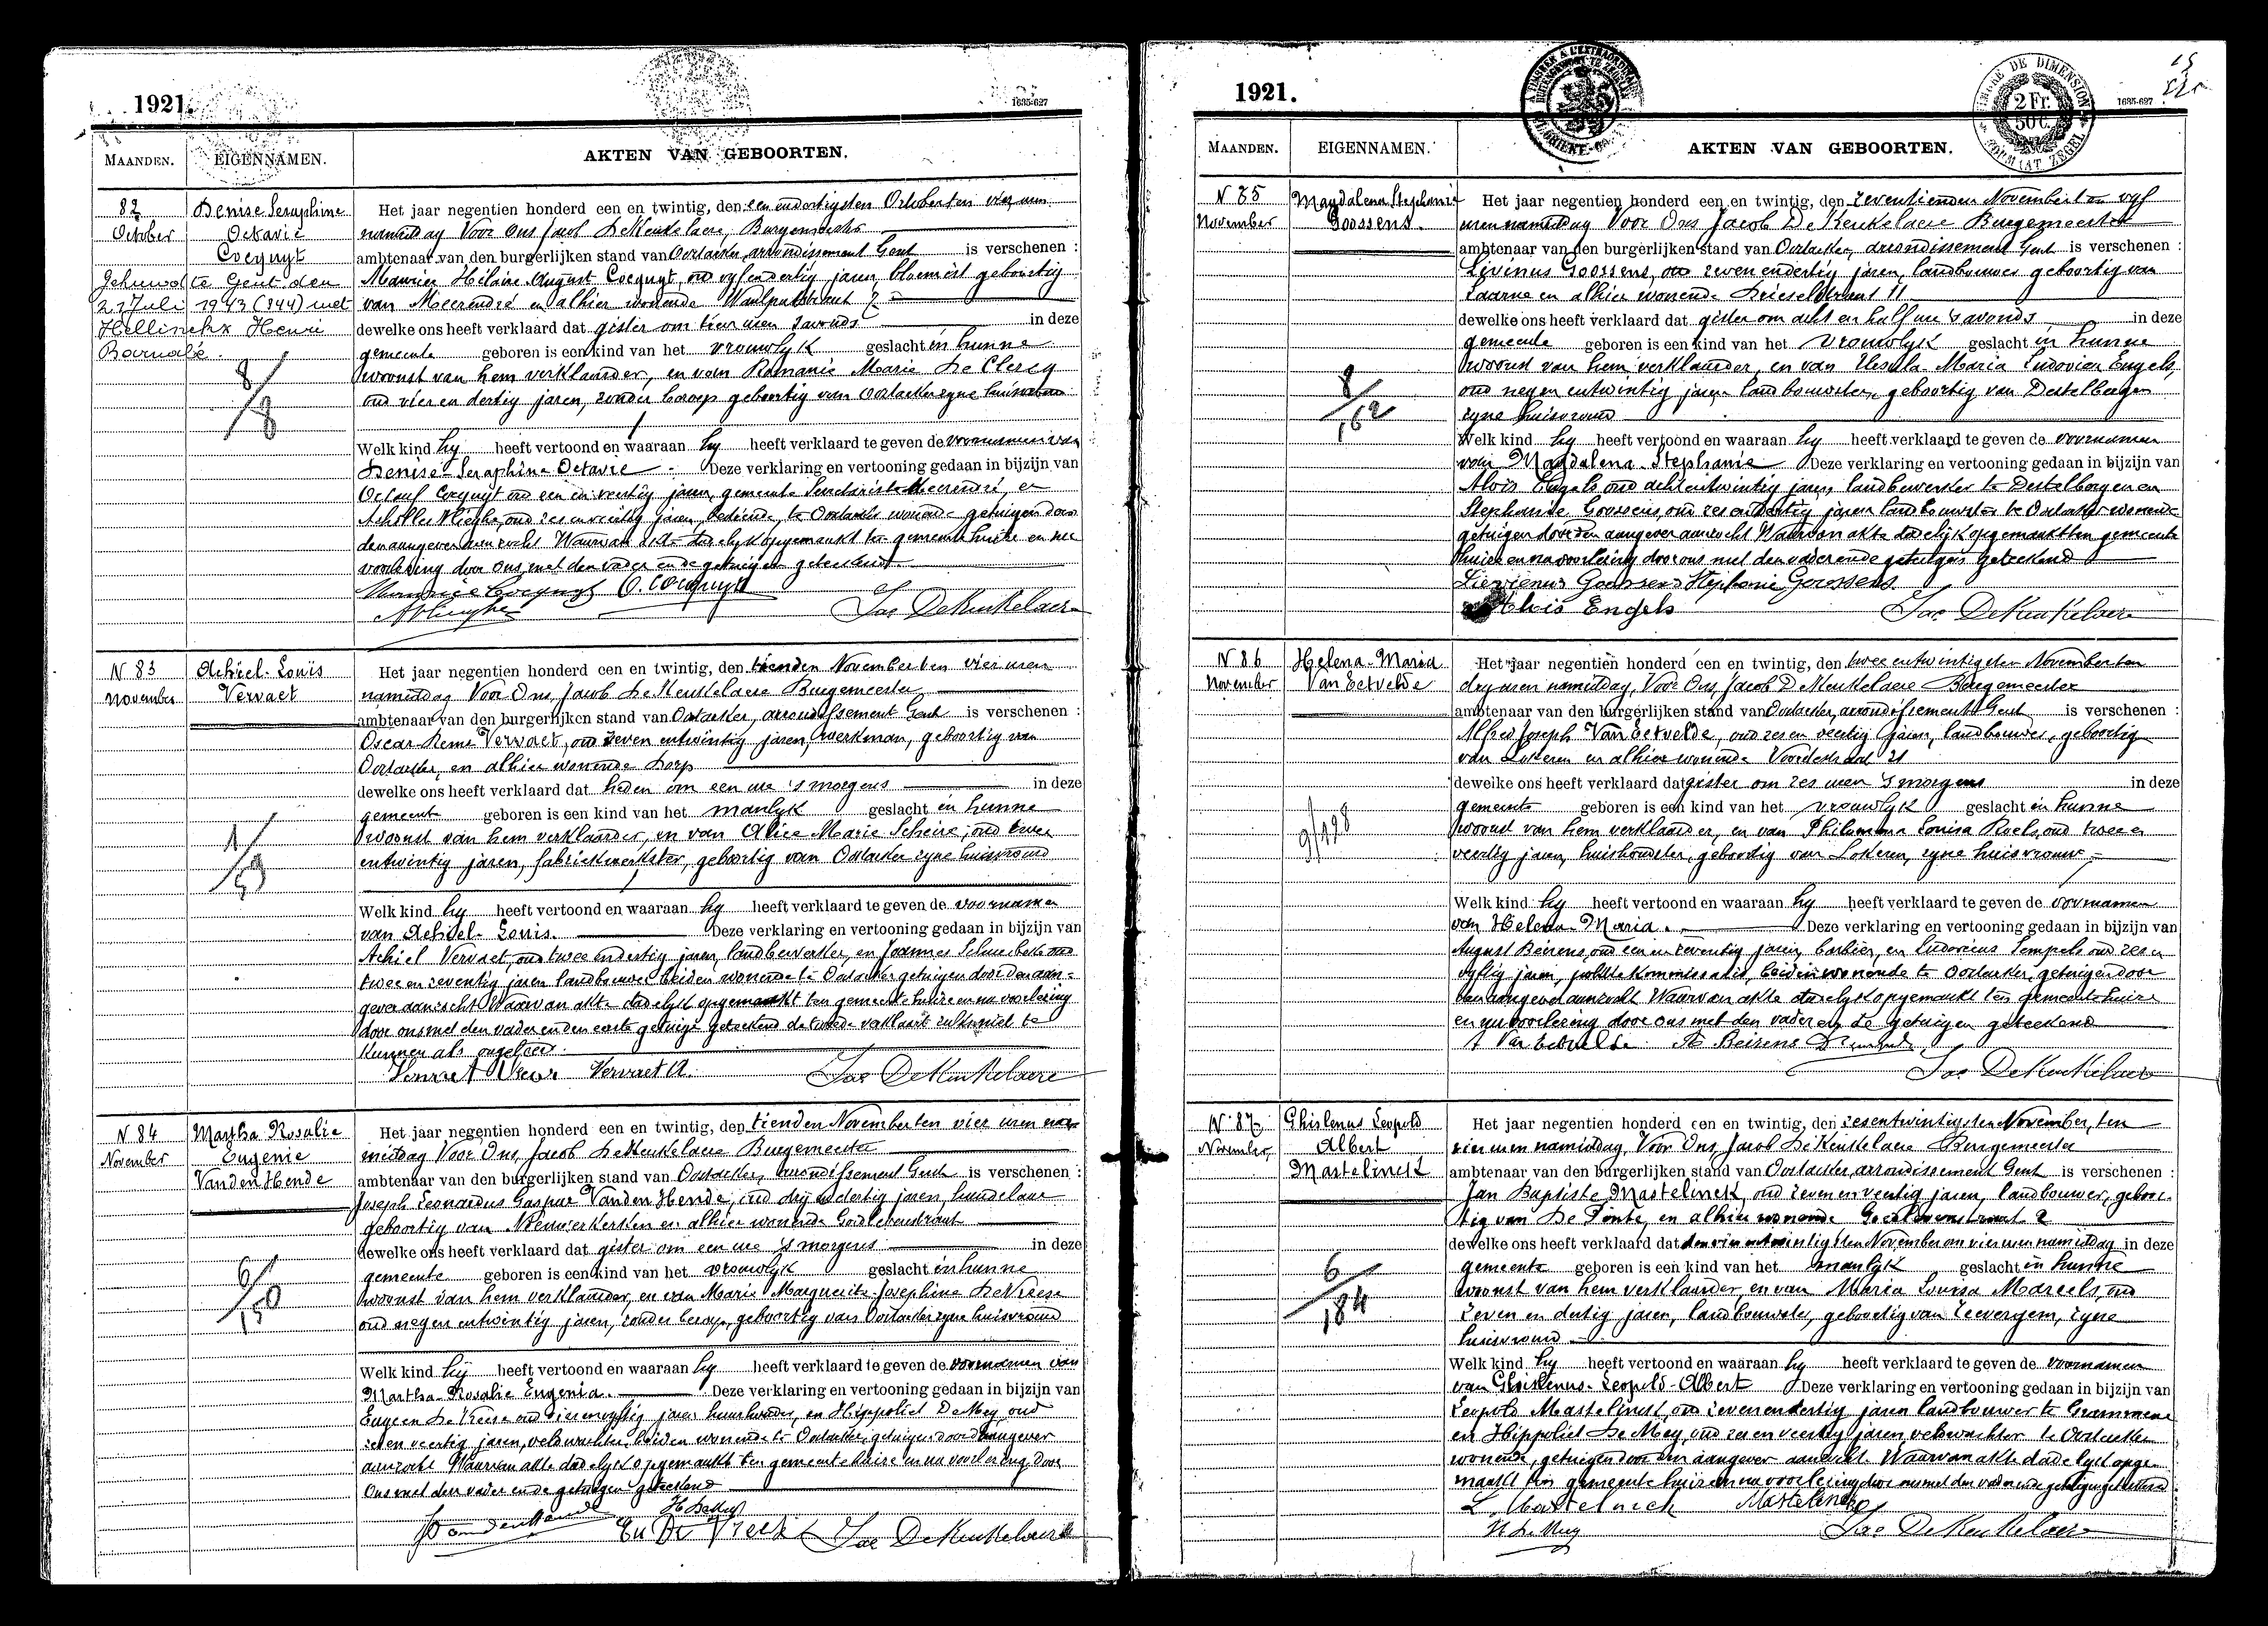 1921.
1635-627
MAANDEN.
EIGENNAMEN.
AKTEN VAN GEBOORTEN.
82
October
Denise Seraphine
Octavie
Cocquyt
Gehuwd te Gent den
27 Juli 1943 (344) met
Hellinckx Henri
8/8
Het jaar negentien honderd een en twintig, den een endertigsten October ten vier uren
namiddag Voor Ons Jacob De Keukelaere, Burgemeester
ambtenaar van den burgerlijken stand van Oostacker arrondissement Gent is verschenen :
Maurice Hilaire August Cocquyt, oud vyf endertig jaren, bloemist geboortig
van Meerendré en alhier wonende
dewelke ons heeft verklaard dat gister om tien uren savonds in deze
gemeente geboren is een kind van het vrouwlyk geslacht in hunne
woonst van hem verklaarder, en van Romanie Marie De Clercq
oud vier en dertig jaren, zonder beroep geboortig van Oostacker zyne huisvrouw
Welk kind hy heeft vertoond en waaraan hy heeft verklaard te geven de voornamen van
Denise-Seraphine-Octavie Deze verklaring en vertooning gedaan in bijzijn van
Cocquyt oud een en jaren, gemeente Meerendré, en
Achilles oud zes en jaren bediende, te Oostacker wonende getuigen door
den aangever aanzocht Waarvan akte dadelyk opgemaakt ten gemeente huize en na
voorlezing door ons met den vader en de getuigen geteekend.
Maurice Cocquyt O. Cocquyt
Jac De Keukelaere
N 83
November
Achiel-Louis
Vervaet
1/53
Het jaar negentien honderd een en twintig, den tienden November ten vier uren
namiddag Voor Ons, Jacob De Keukelaere Burgemeester
ambtenaar van den burgerlijken stand van Oostacker, arrondissement Gent is verschenen :
Oscar Remi Vervaet, oud zeven entwintig jaren, werkman, geboortig van
Oostacker, en alhier wonende Dorp
dewelke ons heeft verklaard dat heden om een ure 's morgens in deze
gemeente geboren is een kind van het manlyk geslacht in hunne
woonst van hem verklaarder, en van Alice Marie Scheire, oud twee
entwintig jaren, fabriekwerkster, geboortig van Oostacker zyne huisvrouw
Welk kind hy heeft vertoond en waaraan hy heeft verklaard te geven de voornamen
van Achiel-Louis. Deze verklaring en vertooning gedaan in bijzijn van
Achiel Vervaet, oud twee endertig jaren, landbewerker, en Joannes oud
twee en zeventig jaren landbouwer beiden wonende te Oostacker getuigen door den aan-
gever aanzocht Waarvan akte dadelyk opgemaakt ten gemeente huize en na voorlezing
door ons met den vader en den eerste getuige geteekend de tweede verklaart zulks niet te
kunnen als ongeleerd.
Vervaet Vervaet A.
Jac De Keukelaere
N 84
November
Martha Rosalie
Eugenie
Vanden Hende
6/150
Het jaar negentien honderd een en twintig, den tienden November ten vier uren na-
middag Voor Ons, Jacob De Keukelaere Burgemeester
ambtenaar van den burgerlijken stand van Oostacker, arrondissement Gent is verschenen :
Joseph Leonardus Gaspar Vanden Hende, oud dry endertig jaren, handelaar
geboortig van Nieuwerkerken en alhier wonende
dewelke ons heeft verklaard dat gister om een ure 's morgens in deze
gemeente geboren is een kind van het vrouwlyk geslacht in hunne
woonst van hem verklaarder, en van Marie Marguerite Josephine De Vreese
oud negen entwintig jaren, zonder beroep, geboortig van Oostacker zyne huisvrouw
Welk kind hy heeft vertoond en waaraan hy heeft verklaard te geven de voornamen van
Martha-Rosalie Eugenia. Deze verklaring en vertooning gedaan in bijzijn van
Eugeen De Vreese oud jaren en Hippoliet De Mey, oud
zes en veertig jaren, veldwachter beiden wonende te Oostacker, getuigen door d'aangever
aanzocht Waarvan akte dadelyk opgemaakt ten gemeente huize en na voorlezing door
Ons met den vader en de getuigen geteekend
H De Mey
Eu De Vreese
Jac De Keukelaere
1921.
TIMBRE DE DIMENSION
2 Fr.
50 C.
FORMAAT ZEGEL
1635-627
MAANDEN.
EIGENNAMEN.
AKTEN VAN GEBOORTEN.
N 85
November
Magdalena Stephanie
Goossens.
8/162
Het jaar negentien honderd een en twintig, den zeventienden November ten vyf
uren namiddag Voor Ons Jacob De Keukelaere Burgemeester
ambtenaar van den burgerlijken stand van Oostacker, arrondissement Gent is verschenen :
Livinus Goossens, oud zeven endertig jaren, landbouwer geboortig van
Laarne en alhier wonende Drieselstraat 11
dewelke ons heeft verklaard dat gister om acht en half ure 's avonds in deze
gemeente geboren is een kind van het vrouwlyk geslacht in hunne
woonst van hem verklaarder, en van Ursula Maria Ludovica Engels,
oud negen entwintig jaren landbouwster, geboortig van Destelbergen
zyne huisvrouw
Welk kind hy heeft vertoond en waaraan hy heeft verklaard te geven de voornamen
van Magdalena-Stephanie Deze verklaring en vertooning gedaan in bijzijn van
Alois Engels, oud acht entwintig jaren, landbewerker te Destelbergen en
Stephanie Goossens, oud zes en dertig jaren landbouwster te Oostacker wonende
getuigen door den aangever aanzocht Waarvan akte dadelyk opgemaakt ten gemeente
huize en na voorlezing door ons met den vader en de getuigen geteekend
Livienus Goossens Stephanie Goossens
Alois Engels
Jac. De Keukelaere
N 86
November
Helena-Maria
Van Eetvelde
9/128
Het jaar negentien honderd een en twintig, den twee entwintigsten November ten
dry uren namiddag, Voor Ons, Jacob De Keukelaere Burgemeester
ambtenaar van den burgerlijken stand van Oostacker, arrondissement Gent is verschenen :
Alfred Joseph Van Eetvelde, oud zes en veertig jaren, landbouwer, geboortig
van Lokeren en alhier wonende 21
dewelke ons heeft verklaard dat gister om zes uren 's morgens in deze
gemeente geboren is een kind van het vrouwlyk geslacht in hunne
woonst van hem verklaarder, en van Philomena Louisa Roels, oud twee en
veertig jaren, huishoudster, geboortig van Lokeren, zyne huisvrouw
Welk kind hy heeft vertoond en waaraan hy heeft verklaard te geven de voornamen
van Helena-Maria. Deze verklaring en vertooning gedaan in bijzijn van
August Beirens, oud een en zeventig jaren, barbier, en Ludovicus Tempels oud zes en
vyftig jaren, politie kommissaris, beiden wonende te Oostacker, getuigen door
den aangever aanzocht Waarvan akte dadelyk opgemaakt ten gemeente huize
en na voorlezing door ons met den vader en de getuigen geteekend
A Van Eetvelde A Beirens
Jac De Keukelaere
N 87
November
Ghislenus Leopold
Albert
Mastelinck
6/184
Het jaar negentien honderd een en twintig, den zesentwintigsten November, ten
vier uren namiddag, Voor Ons, Jacob De Keukelaere Burgemeester
ambtenaar van den burgerlijken stand van Oostacker, arrondissement Gent is verschenen :
Jan Baptiste Mastelinck, oud zeven en veertig jaren, landbouwer, geboor-
tig van De Pinte, en alhier wonende 2
dewelke ons heeft verklaard dat den vier entwintigsten November om vier uren namiddag in deze
gemeente geboren is een kind van het manlyk geslacht in hunne
woonst van hem verklaarder, en van Maria Louisa Mareels, oud
zeven en dertig jaren, landbouwster, geboortig van Zevergem, zyne
huisvrouw
Welk kind hy heeft vertoond en waaraan hy heeft verklaard te geven de voornamen
van Ghislenus-Leopold-Albert Deze verklaring en vertooning gedaan in bijzijn van
Leopold Mastelinck, oud zeven endertig jaren landbouwer te Grammene
en Hippoliet De Mey, oud zes en veertig jaren, veldwachter te Oostacker
wonende, getuigen door den aangever aanzocht. Waarvan akte dadelyk opge-
maakt ten gemeente huize en na voorlezing door ons met den vader en de getuigen geteekend
L. Mastelinck Mastelinck
H De Mey
Jac De Keukelaere